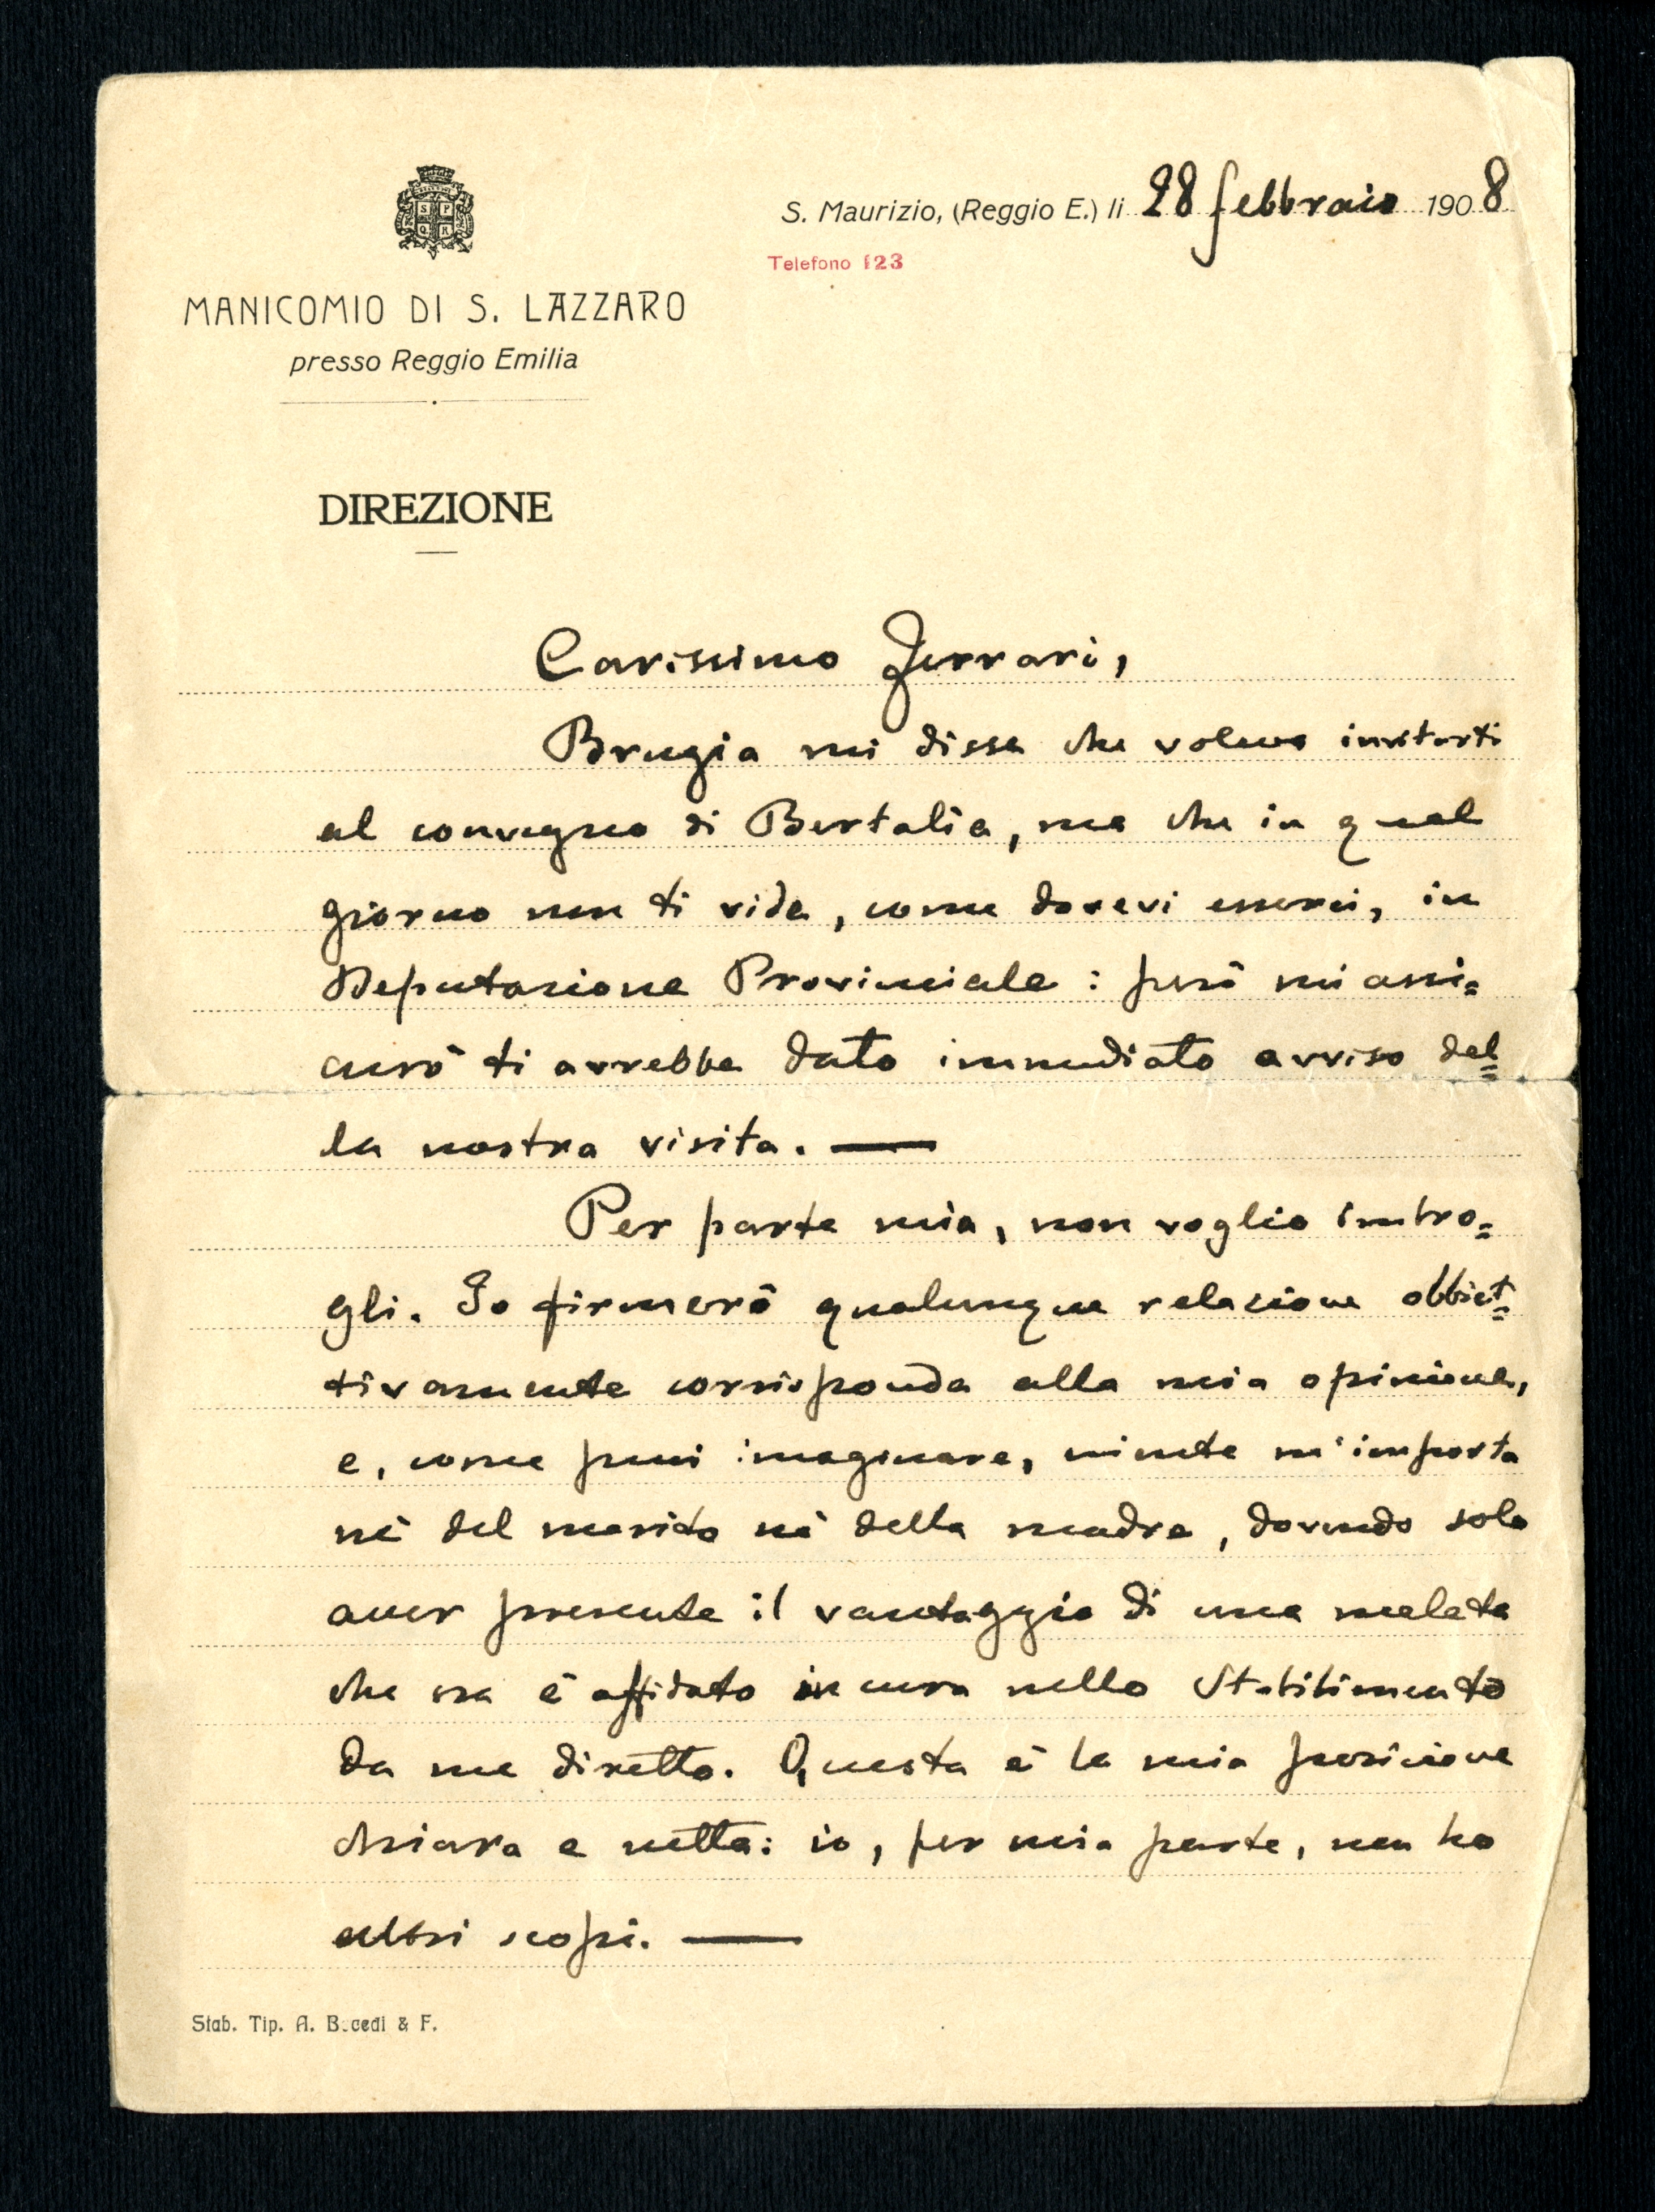 S. Maurizio, (Reggio E.) li 28 febbraio 1908
Telefono 123
S P
Q R
MANICOMIO DI S. LAZZARO
presso Reggio Emilia
DIREZIONE
Carissimo Ferrari,
Brugia mi disse che voleva invitarti
al convegno di Bertalia, ma che in quel
giorno non ti vide, come dovevi esserci, in
Deputazione Provinciale: però mi assi=
curò ti avrebbe dato immediato avviso del=
la nostra visita. —
Per parte mia, non voglio imbro=
gli. Io firmerò qualunque relazione obbiet=
tivamente corrisponda alla mia opinione,
e, come puoi imaginare, niente m'importa
nè del marito nè della madre, dovendo solo
aver presente il vantaggio di una malata
che ora è affidata in cura nello Stabilimento
da me diretto. Questa è la mia posizione
chiara e netta: io, per mia parte, non ho
altri scopi. —
Stab. Tip. A. B.cedi & F.